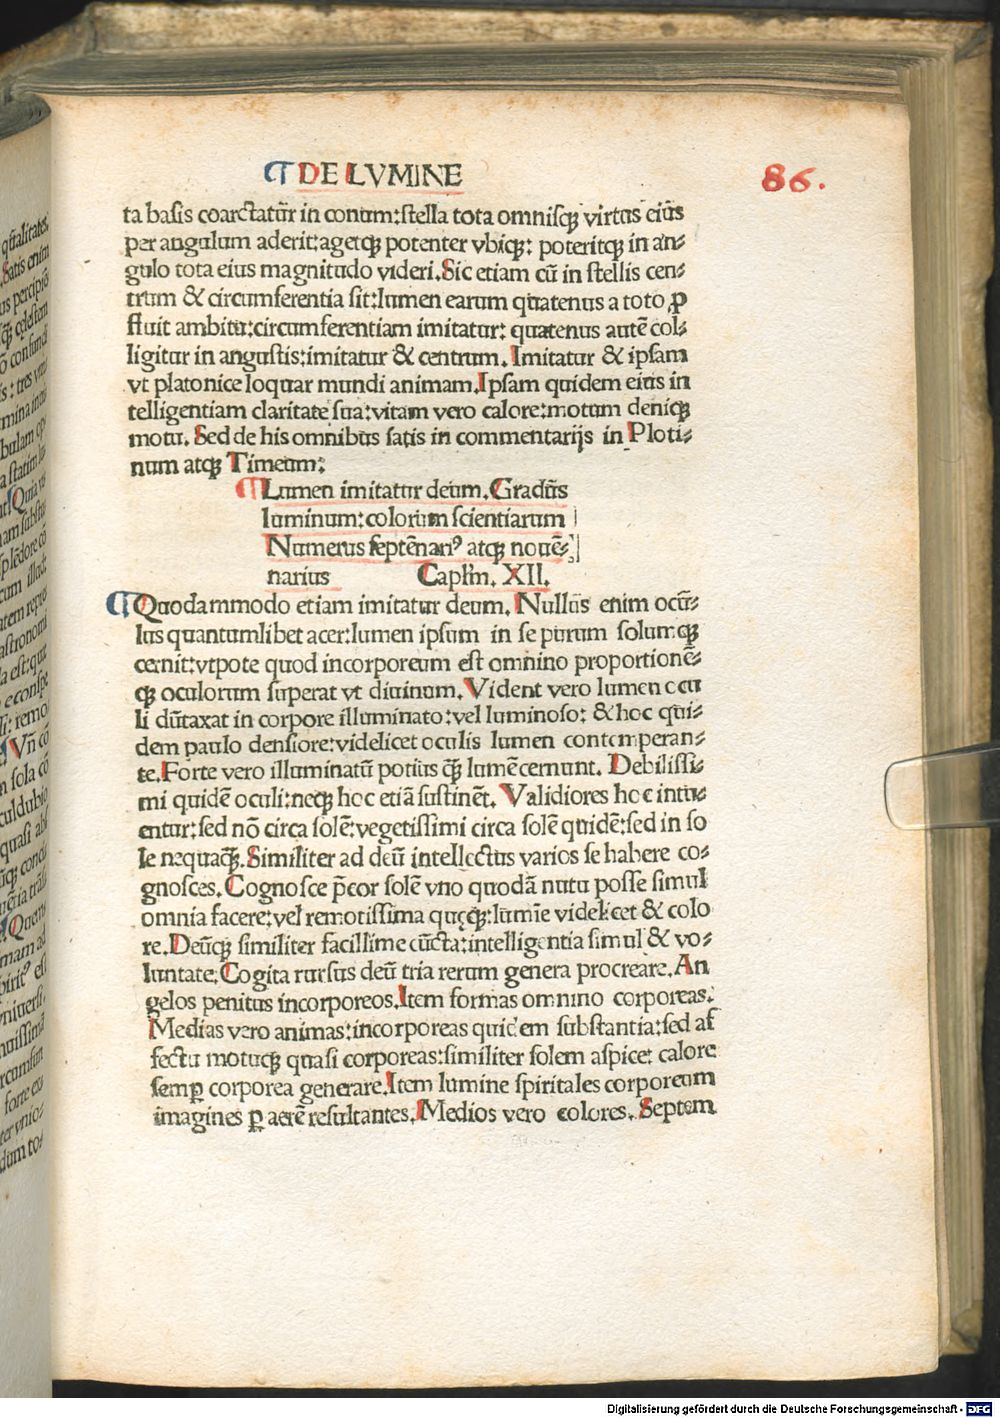 ¶ DE LVMINE
86.
ta basis coarctatur̄ in conum:stella tota omnisq; virtus eius
per angulum aderit:agetq; potenter vbiq;: poteritq; in an-
gulo tota eius magnitudo videri.Sic etiam cū in stellis cen-
trum & circumferentia sit:lumen earum quatenus a toto ꝓ
fluit ambitu:circumferentiam imitatur: quatenus autē col-
ligitur in angustis:imitatur & centrum. Imitatur & ipsam
vt platonice loquar mundi animam.Ipsam quidem eius in
telligentiam claritate sua:vitam vero calore:motum deniq;
motu. Sed de his omnibus satis in commentarijs in Ploti-
num atq; Timeum:
¶ Lumen imitatur deum.Gradus
luminum:colorum scientiarum
Numerus septēnariꝰ atq; nouē-
narius Caplm. XII.
¶ Quodammodo etiam imitatur deum. Nullus enim ocū-
lus quantumlibet acer:lumen ipsum in se purum solumq;
cernit:vtpote quod incorporeum est omnino proportionē-
q; oculorum superat vt diuinum. Vident vero lumen ocu
li dūtaxat in corpore illuminato:vel luminoso: & hoc qui-
dem paulo densiore:videlicet oculis lumen contemperan-
te.Forte vero illuminatū potius q̄ lumē cernunt. Debilissi-
mi quidē oculi:neq; hoc etiā sustinēt. Validiores hoc intu-
entur:sed nō circa solē:vegetissimi circa solē quidē:sed in so
le nequaq̄. Similiter ad deū intellectus varios se habere co-
gnosces. Cognosce p̄cor solē vno quodā nutu posse simul
omnia facere:vel remotissima quęq;:lumīe videlicet & colo
re.Deūq; similiter facillime cūcta:intelligentia simul & vo-
luntate.Cogita rursus deū tria rerum genera procreare.An
gelos penitus incorporeos.Item formas omnino corporeas:
Medias vero animas:incorporeas quidem substantia:sed af
fectu motuq; quasi corporeas:similiter solem aspice: calore
semꝑ corporea generare.Item lumine spiritales corporeum
imagines ꝑ aerē resultantes.Medios vero colores. Septem
Digitalisierung gefördert durch die Deutsche Forschungsgemeinschaft - DFG